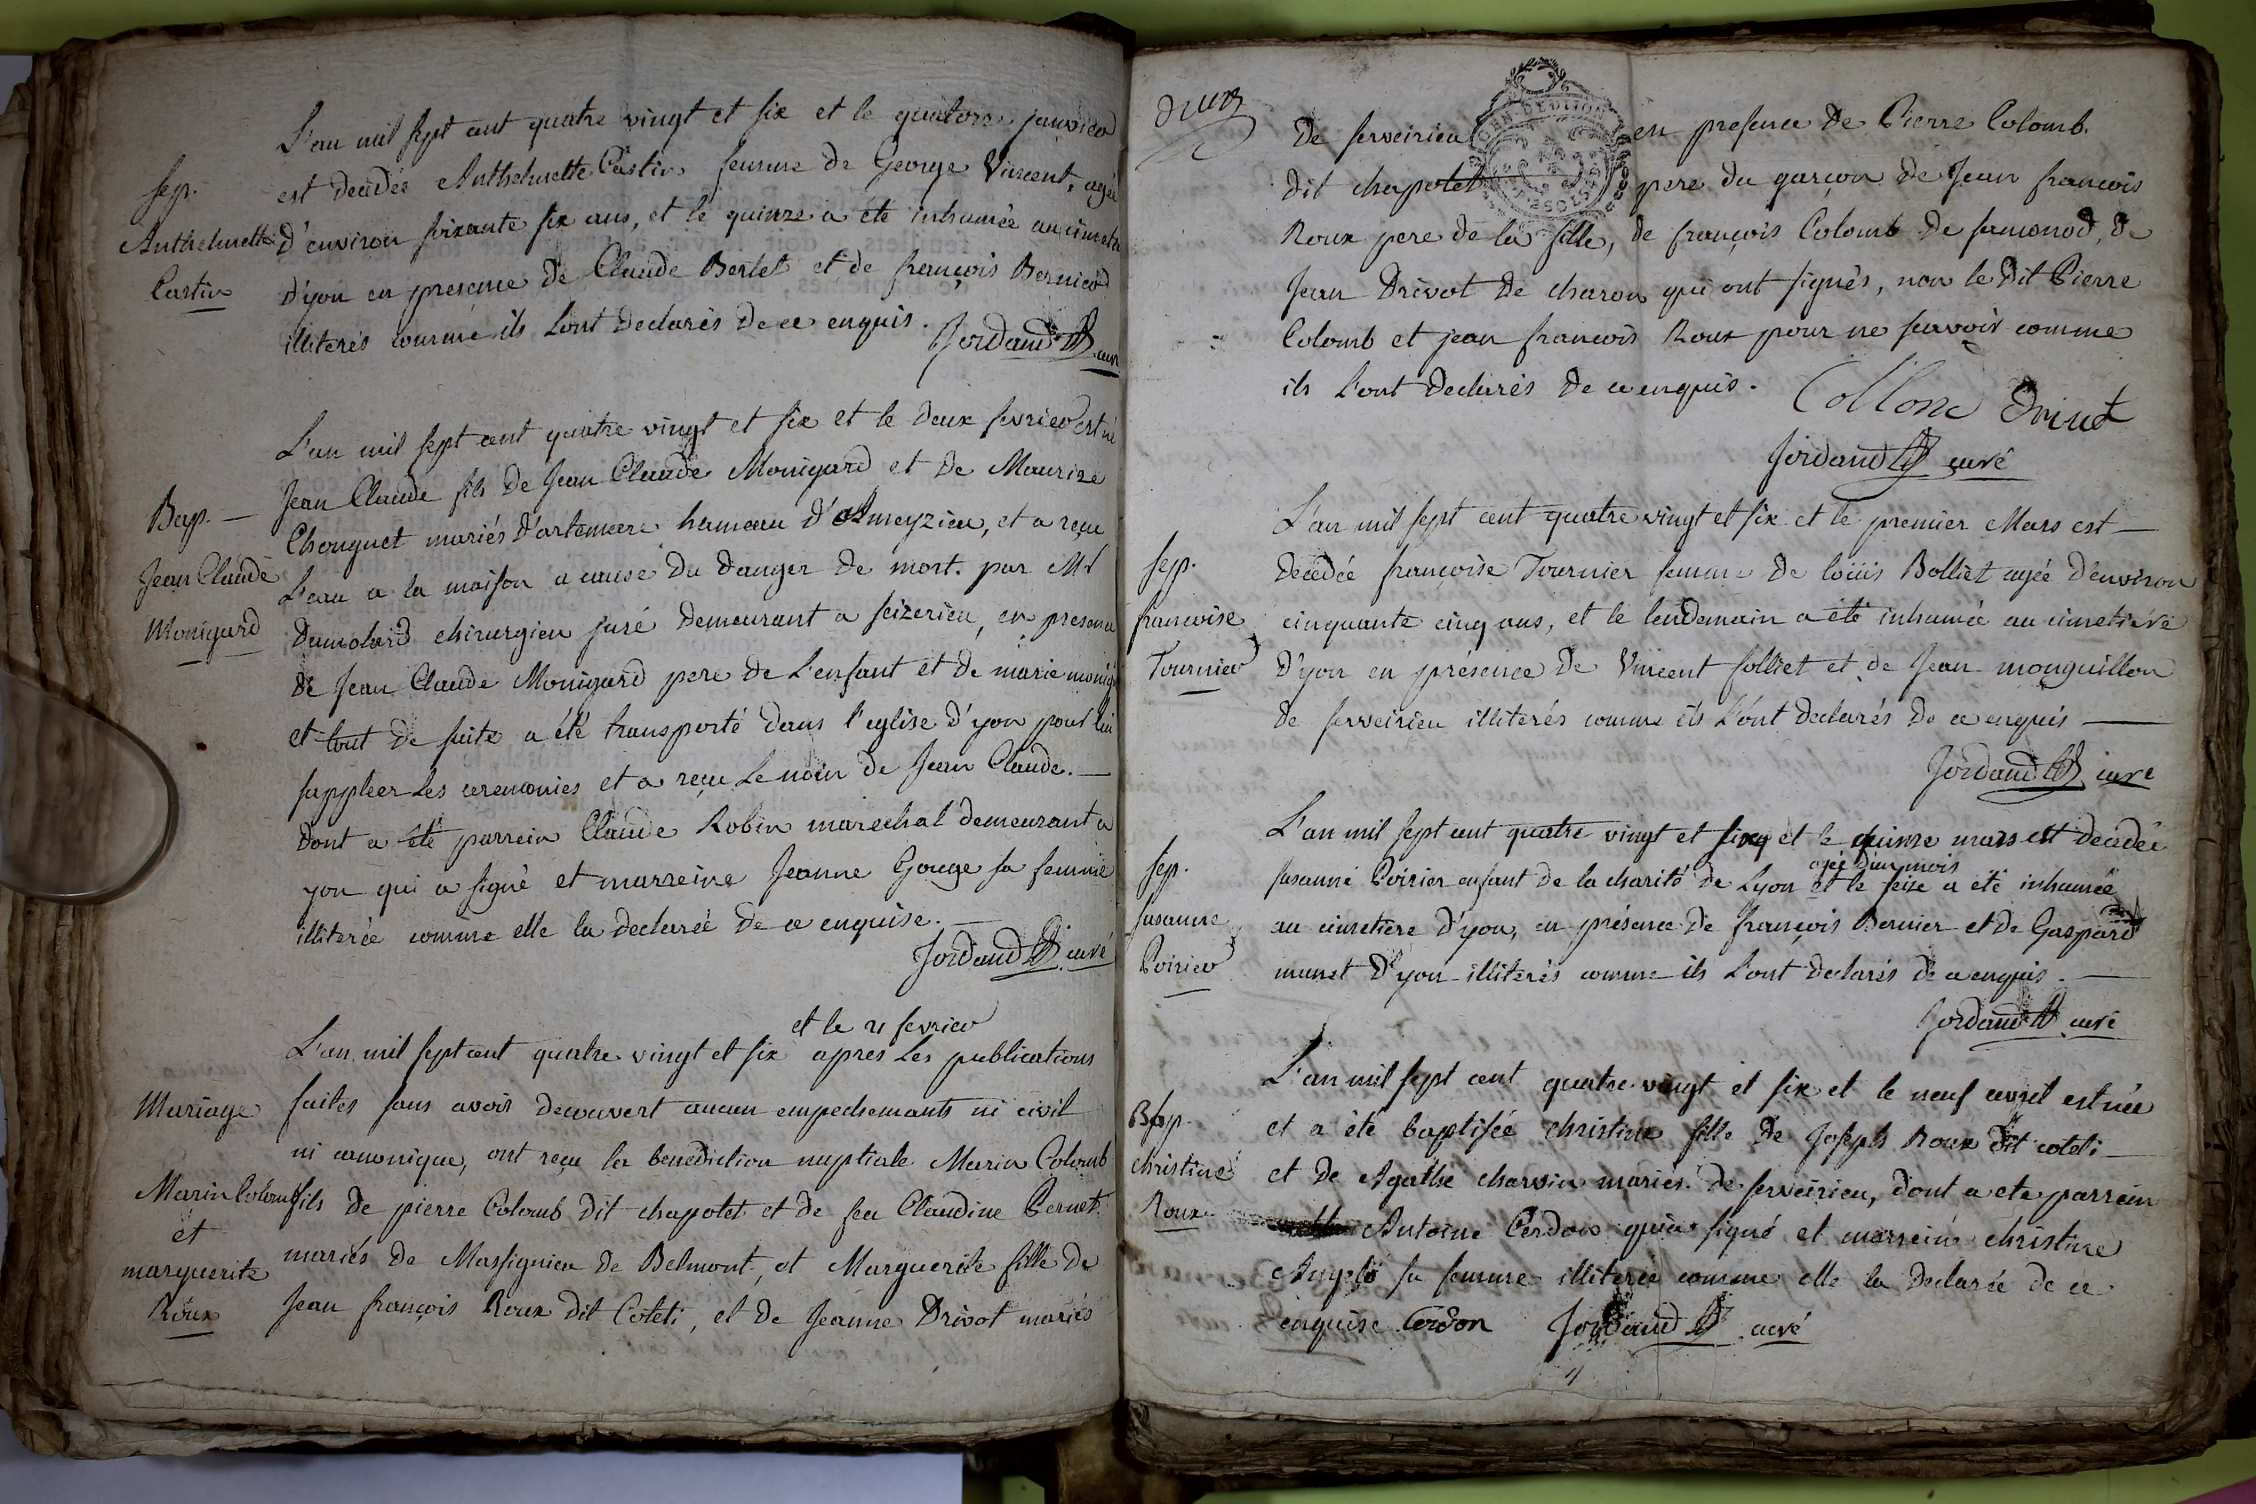 L'an mil sept cent quatre vingt et six et le quatorze janvier
Sep.
est decedée Anthelmette Castin femme de George Vincent, agée
Anthelmette
d'environ soixante six ans, et le quinze a été inhumée au cimetiere
Castin
d'yon en presence de Claude Bertet et de françois Bernier
illiterés comme ils L'ont declarés de ce enquis.
Jordand curé
L'an mil sept cent quatre vingt et six et le deux fevrier est né
Bap.
Jean Claude fils de Jean Claude Monigard et de Maurize
Jean Claude
Chouguet mariés d'artemare hameau d'Ameyzieu, et a reçu
Monigard
L'eau a la maison a cause du danger de mort. par Mr
Dumolard chirurgien juré demeurant a seizerieu, en presence
de Jean Claude Monigard pere de L'enfant et de marie
et tout de suite a été transporté dans l'eglise d'yon pour lui
suppleer Les ceremonies et a reçu Le nom de Jean Claude.
Dont a été parrein Claude Robin marechal demeurant a
yon qui a signé et marreine Jeanne Gouge sa femme
illiterée comme elle la declarée de ce enquise.
Jordand curé
et le 21 fevrier
L'an mil sept cent quatre vingt et six apres Les publications
Mariage
faites sans avoir decouvert aucun empechements ni civil
ni canonique, ont reçu la benediction nuptiale Marin Colomb
Marin Colomb
fils de pierre Colomb dit chapotet et de feu Claudine Pernet
et
marguerite
mariés de Massignieu de Belmont, et Marguerite fille de
Roux
Jean françois Roux dit Coteti, et de Jeanne Drivot mariés
deux
de serveirieu en presence de Pierre Colomb
dit chapotet pere du garçon de Jean françois
Roux pere de la fille, de françois Colomb de samonod, de
Jean Drivot de charon qui ont signés, non le dit Pierre
Colomb et jean françois Roux pour ne savoir comme
ils L'ont declarés de ce enquis.
Collonc Drivet
Jordand curé
L'an mil sept cent quatre vingt et six et le premier Mars est
Sep.
decedée françoise Tournier femme de loüis Bolliet agée d'environ
francoise
cinquante cinq ans, et le lendemain a été inhumée au cimetiére
Tournier
d'yon en présence de Vincent folliet et de Jean monguillon
de serveirieu illiterés comme ils L'ont declarés de ce enquis
Jordand curé
L'an mil sept cent quatre vingt et six et le quinze mars est decedée
agée d'un mois
Sep.
susanne Poirier enfant de la charité de Lyon et le seize a été inhumée
susanne
au cimetiere d'yon, en présence de françois Bernier et de Gaspard
Poirier
munet d'yon illiterés comme ils L'ont declarés de ce enquis.
Jordand curé
L'an mil sept cent quatre vingt et six et le neuf avril est née
Bap.
et a été baptisée christine fille de Joseph Roux dit coteti
christine
et de Agathe charvin mariés de serveirieu, dont a ete parrein
Roux
Antoine Cerdon qui a signé et marreine christine
Angelo sa femme illiterée comme elle la declarée de ce
enquise Cerdon Jordand curé